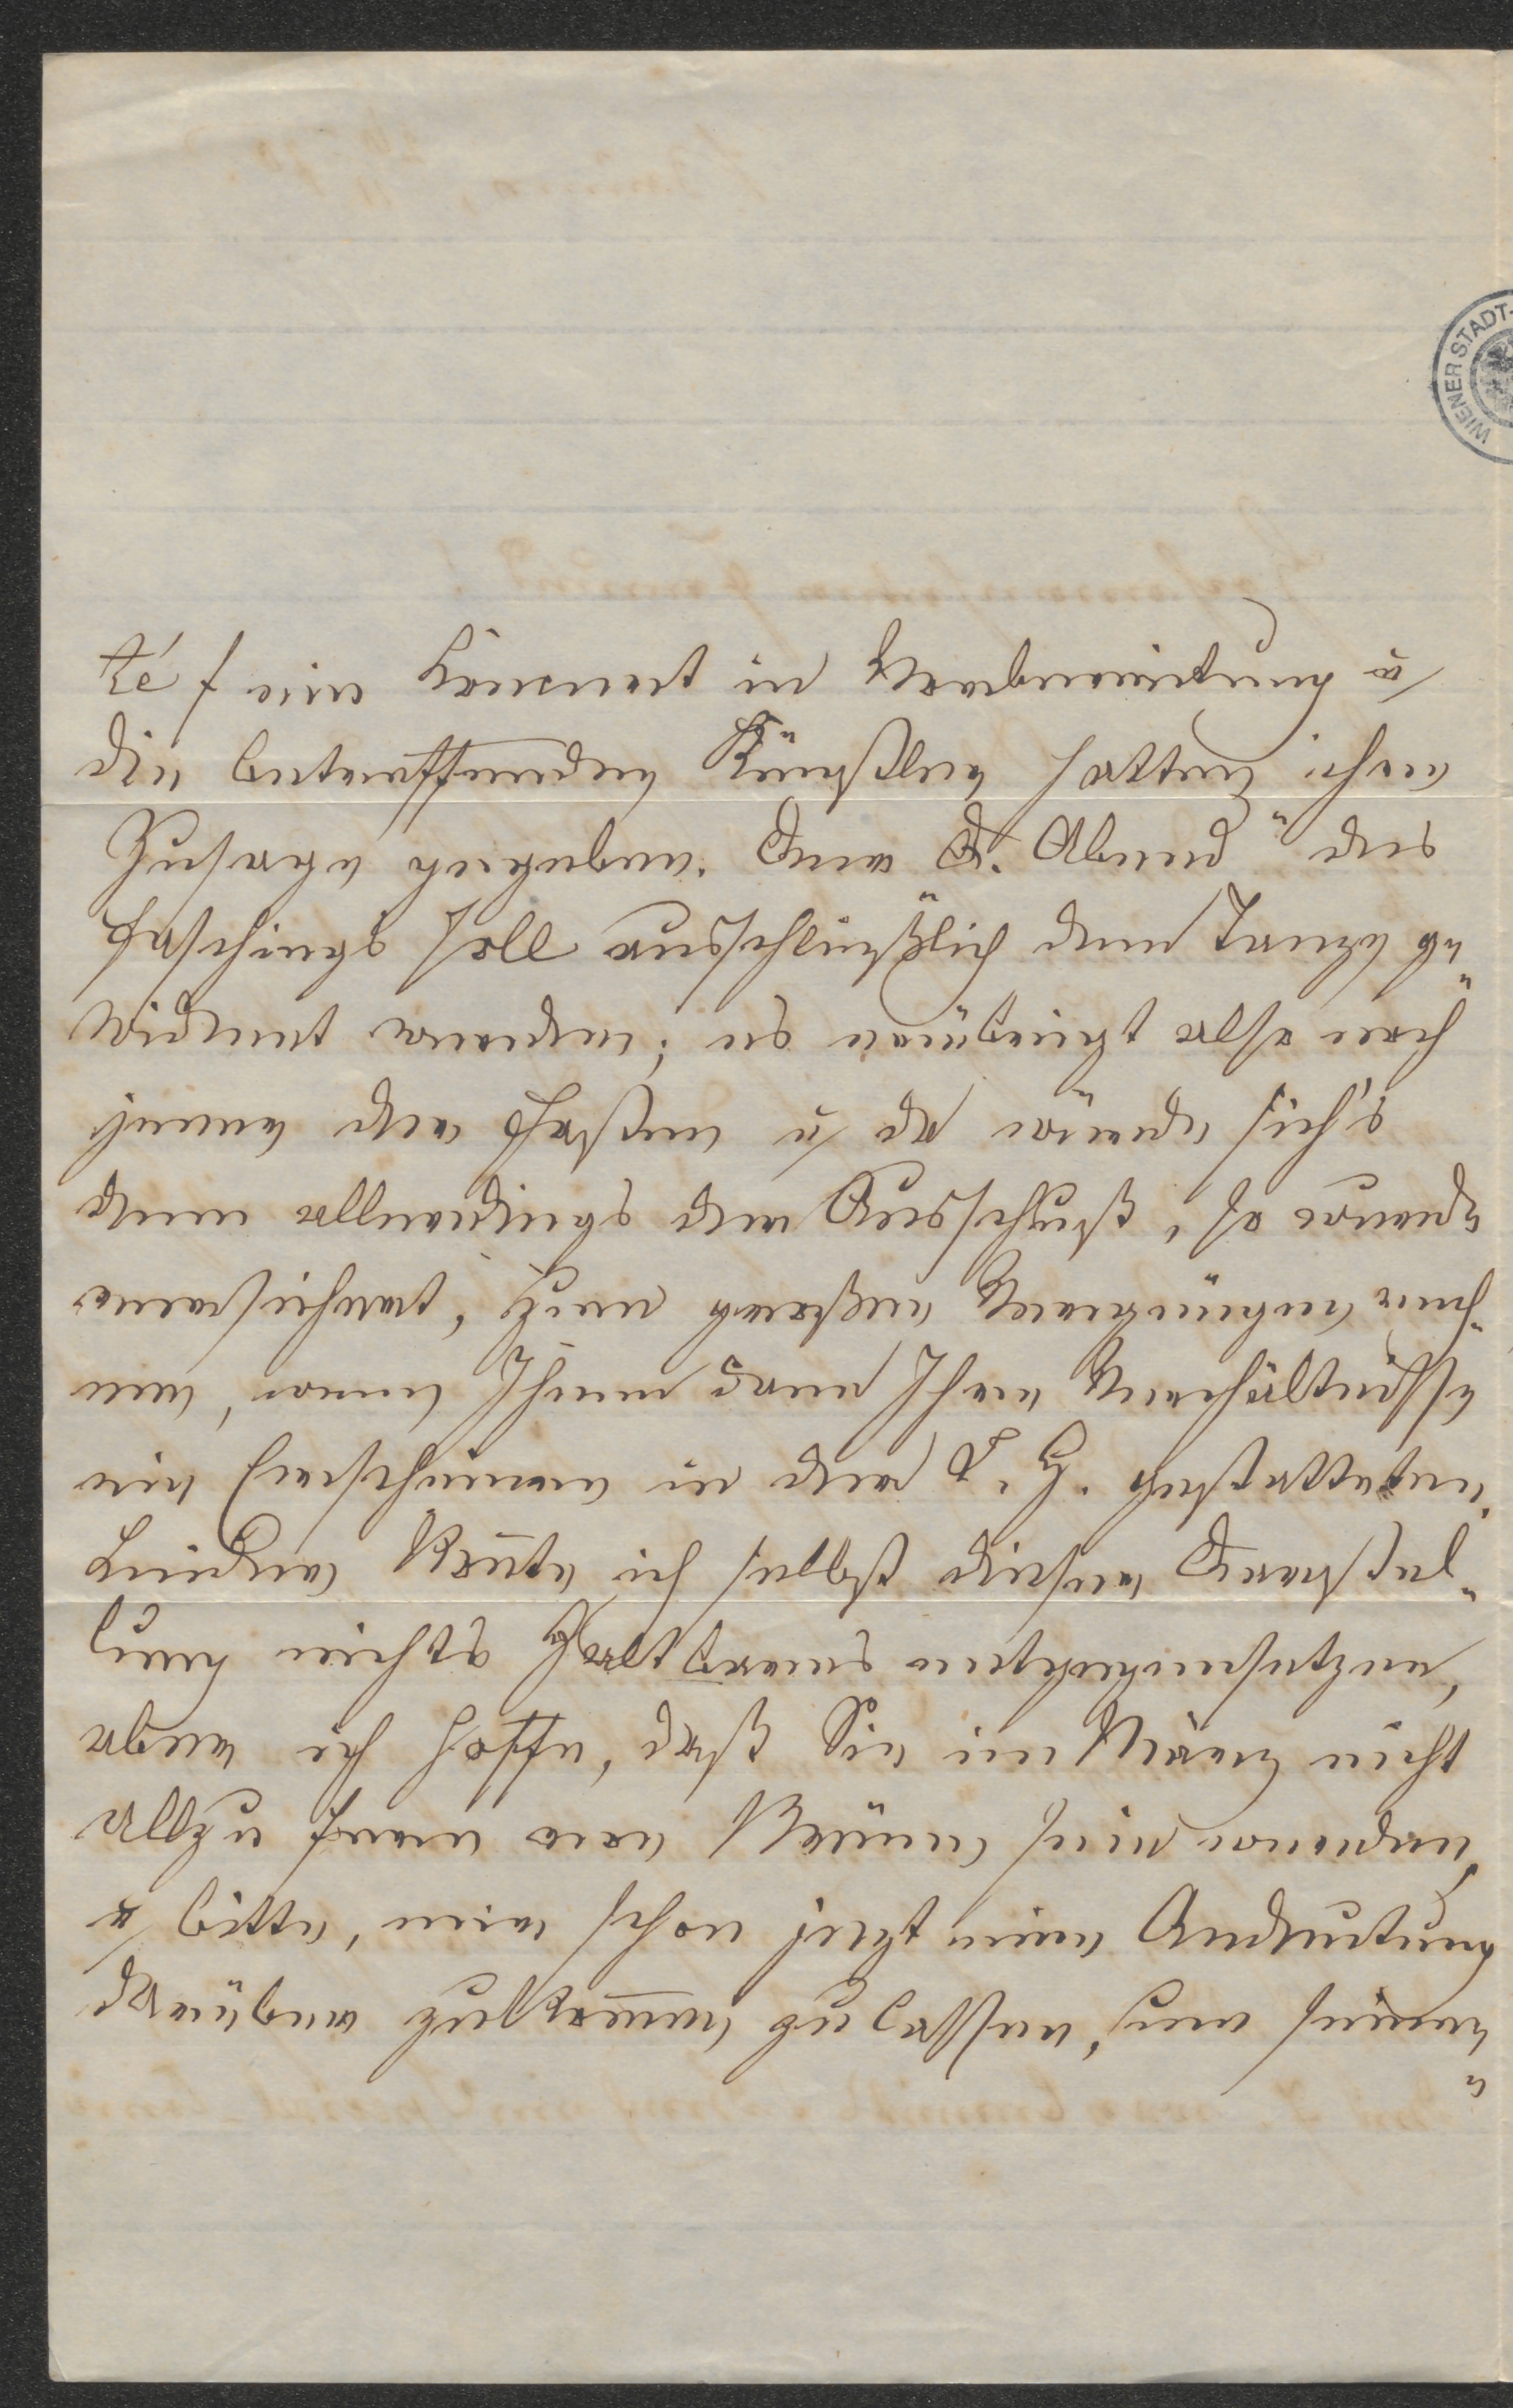 té f ein Konzert in Vorbereitung u
die betreffenden Künstler hatten ihre
Zusage gegeben. Der D. Abend" des
Faschings soll ausschließlich dem Tanze ge„
widmet werden; es erübrigt also noch
jener der Fasten u da würde sich's
denn allerdings der Ausschuß, so wurde
versichert, zum großen Vergnügen rech„
nen, wenn Ihnen dann Ihre Verhältnisse
ein Erscheinen in der D. G. gestatteten.
Leider konnte ich selbst dieser Darstel„
lung nichts Haltbares entgegensetzen,
aber ich hoffe, daß Sie im März nicht
allzu fern von Brünn sein werden,
u bitte, mir schon jetzt eine Andeutung
darüber zukommen zu lassen, um seiner„
WIENER STADT-